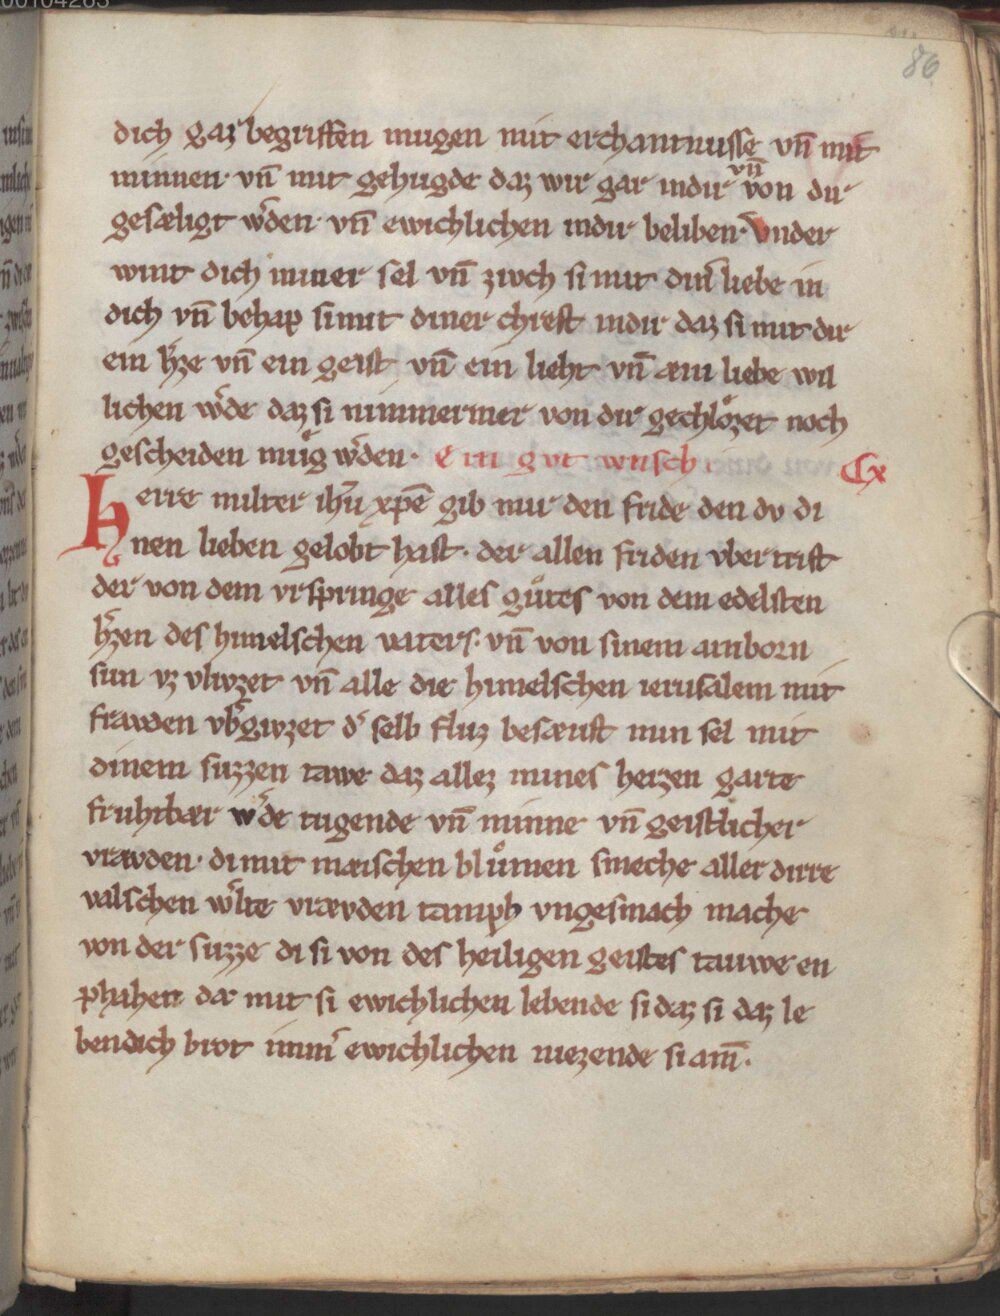 86
dich gaz begriffen mugen mit erchantnusse vn̄ mit
minnen· vn̄ mit gehugde daz wir gar indir vn̄ von dir
gesæligt wͤden· vn̄ ewichlichen indir beliben· Vnder
wint dich miner sel vn̄ zivch si mit dinͬ liebe in
dich vn̄ behap si mit diner chreft indir daz si mit dir
ein h̾ze vn̄ ein geist vn̄ ein lieht vn̄ æin liebe wil
lichen w̾de daz si nimmermer von dir gechlözet noch
gescheiden mu̇g w̾den· Ein gvt wnsch· Cx
Herre milter ihū xpē gib mir den fride den dv di
nen lieben gelobt hast· der allen friden vbertrift
der von dem vrspringe alles gůtes von dem edelsten
h̾zen des himelschen vaters· vn̄ von sinem ainborn
sun vz vlivzet vn̄ alle die himelschen ierusalem mit
frawden vb̾givzet d̾ selb fluz besæuft min sel mit
dinem suzzen tawe daz allez mines herzen garte
fruhtbær w̾de tugende vn̄ minne vn̄ geistlicher
vrawden· di mit mæischen blůmen smeche aller dirre
valschen w̾lte vrævden tamph vngesmach mache
von der suzze di si von des heiligen geistes tauwe en
phahen da mit si ewichlichen lebende si daz si daz le
bendich brot imm̾ ewichlichen niezende si am̄·